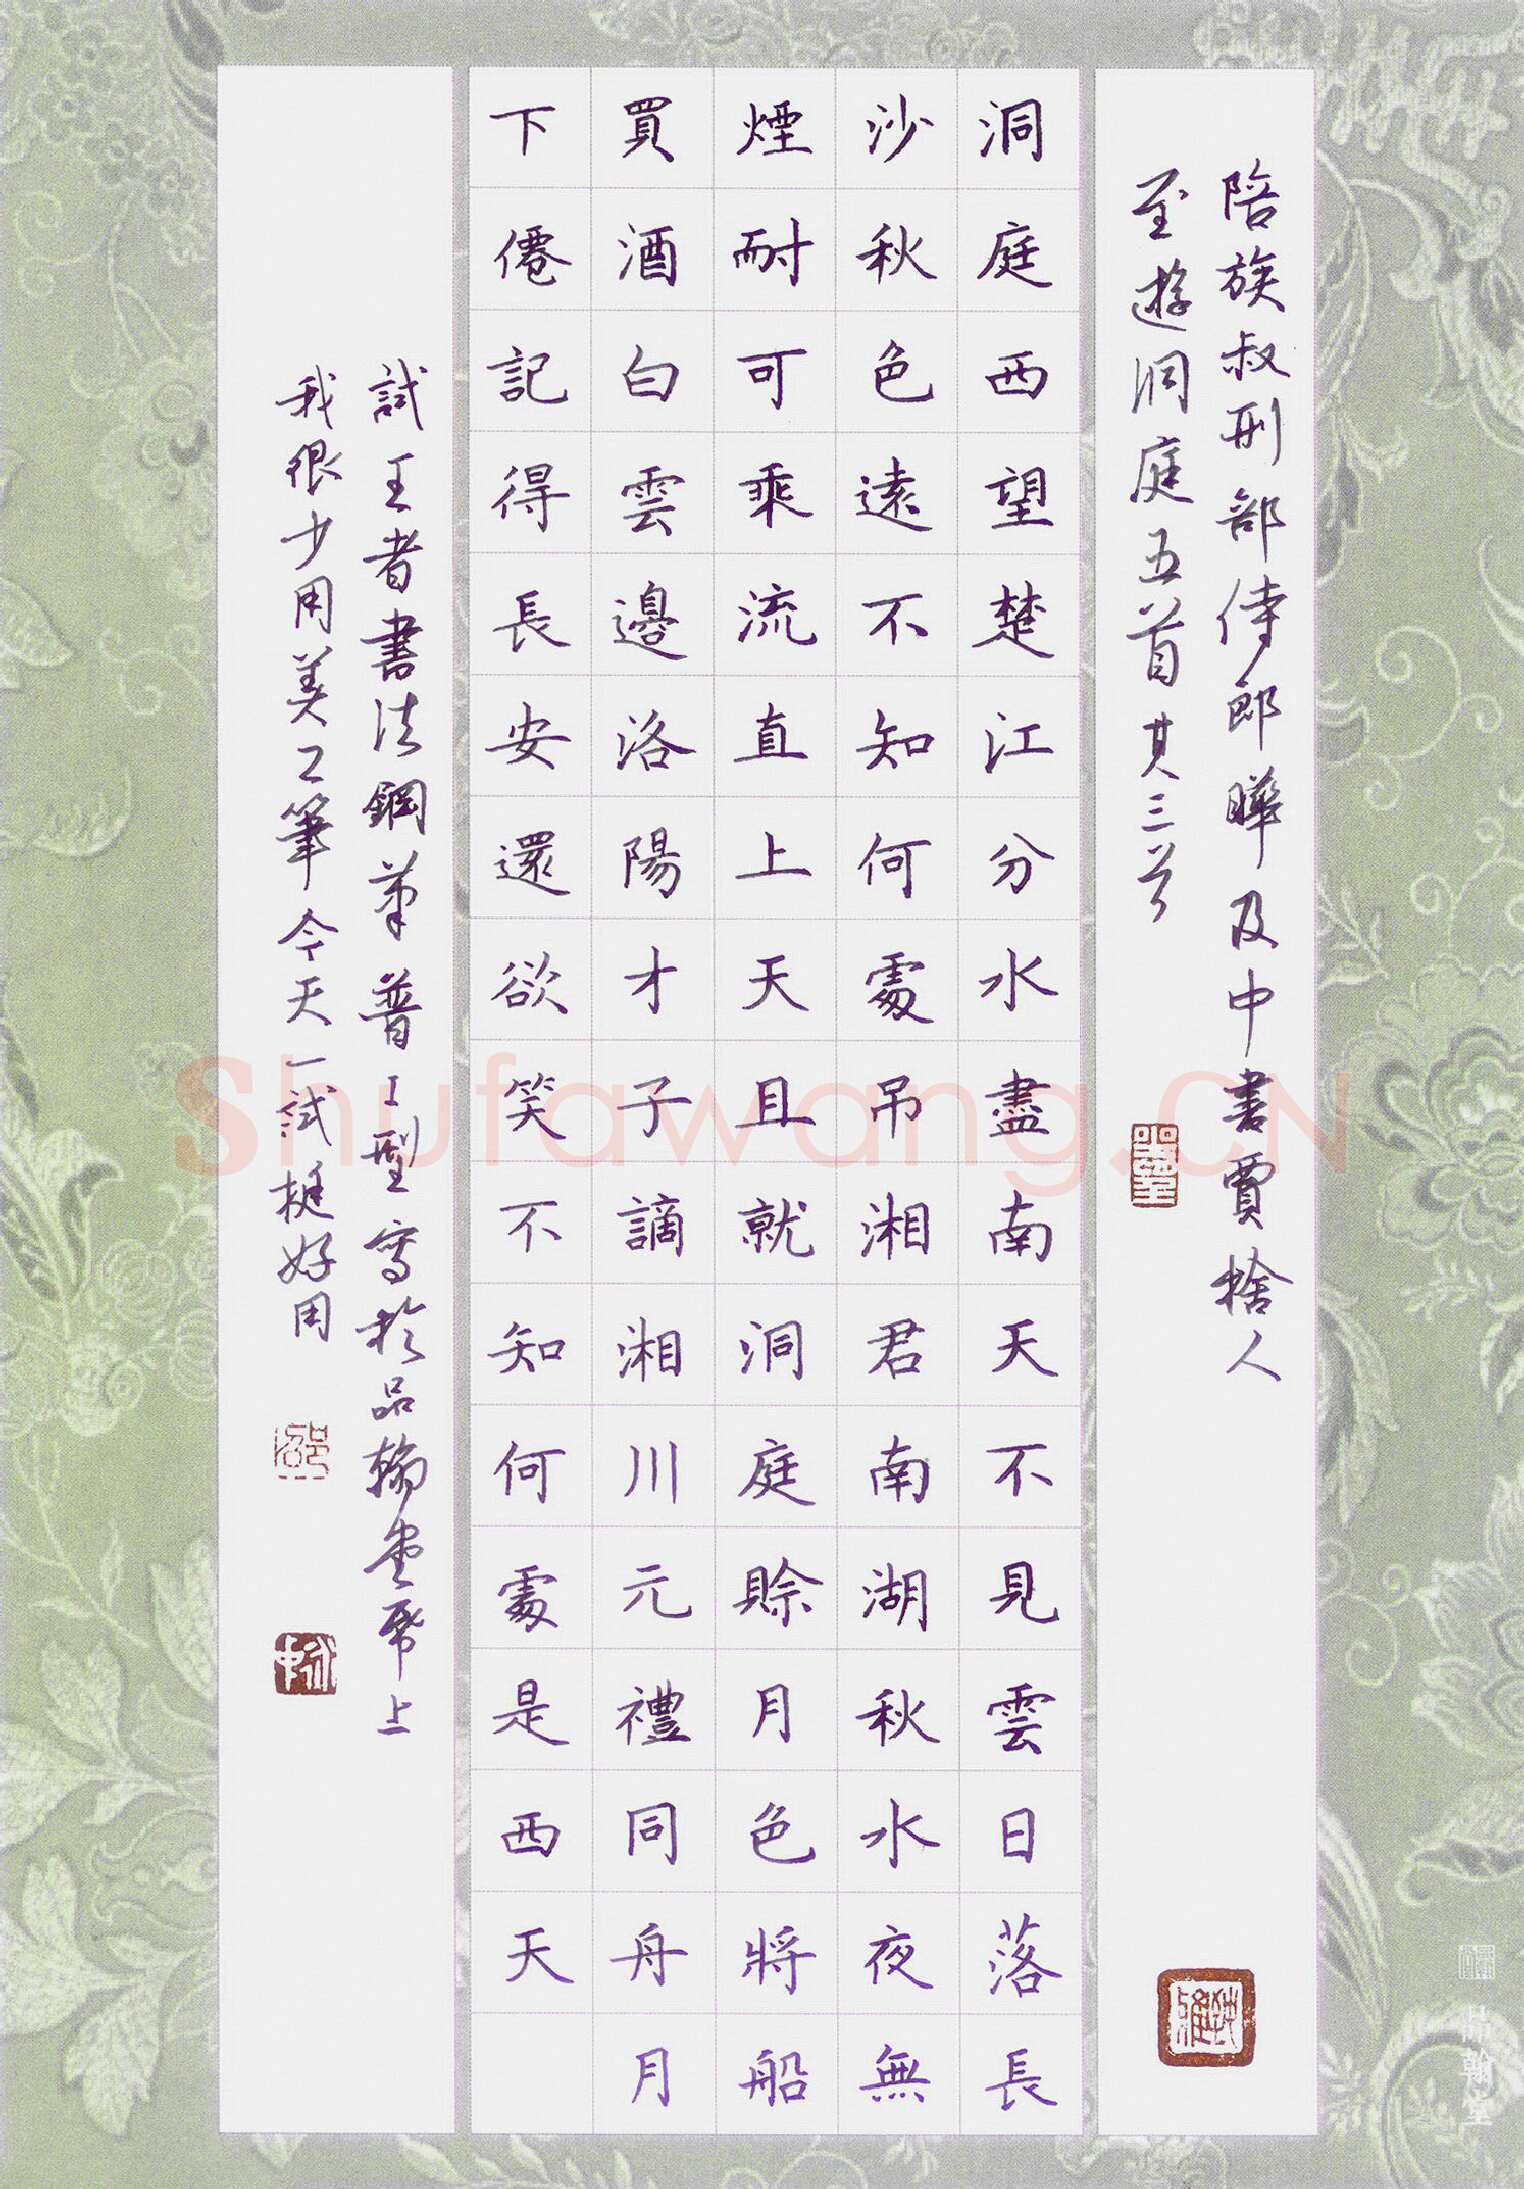 陪族叔刑部侍郎曄及中書賈捨人
至遊洞庭五首其三首
洞庭西望楚江分水盡南天不見雲日落長
沙秋色遠不知何處吊湘君南湖秋水夜無
煙耐可乘流直上天且就洞庭賒月色將船
買酒白雲邊洛陽才子謫湘川元禮同舟月
下僊記得長安還欲笑不知何處是西天
試王者書法鋼筆普工型寫於品翰堂帋上
我很少用美工筆今天一試挺好用
品翰堂
Shufawang.CN